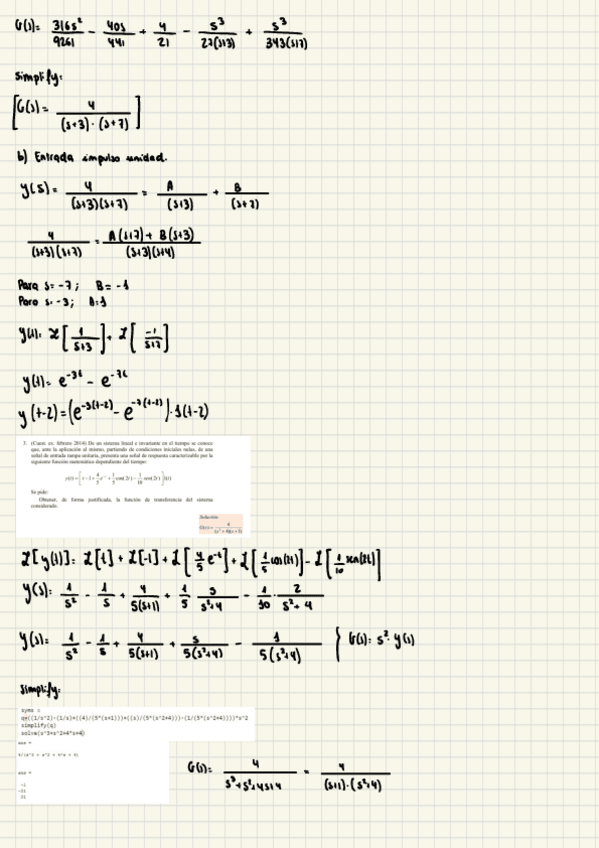 G(s)= 316s²/9261 - 40s/441 + 4/21 - s³/27(s+3) + s³/343(s+7)
simplify:
[G(s)= 4/(s+3)·(s+7)]
b) Entrada impulso unidad.
y(s)= 4/(s+3)(s+7) = A/(s+3) + B/(s+7)
4/(s+3)(s+7) = A(s+7)+B(s+3)/(s+3)(s+4)
Para s=-7; B=-1
Para s=-3; A=1
y(t): L[1/s+3] + L[-1/s+7]
y(t)= e^-3t - e^-7t
y(t-2)=(e^-3(t-2) - e^-7(t-2))·1(t-2)
3. (Cuest. ex. febrero 2014) De un sistema lineal e invariante en el tiempo se conoce
que, ante la aplicación al mismo, partiendo de condiciones iniciales nulas, de una
señal de entrada rampa unitaria, presenta una señal de respuesta caracterizable por la
siguiente función matemática dependiente del tiempo:
y(t)=[t-1+4/5 e^-t+1/5 cos(2t)-1/10 sen(2t)]1(t)
Se pide:
Obtener, de forma justificada, la función de transferencia del sistema
considerado.
Solución:
G(s)= 4/(s²+4)(s+1)
L[y(t)]= L[t]+L[-1]+L[4/5 e^-t]+L[1/5 cos(2t)]-L[1/10 sen(2t)]
y(s)= 1/s² - 1/s + 4/5(s+1) + 1/5 s/s²+4 - 1/10 · 2/s²+4
y(s)= 1/s² - 1/s + 4/5(s+1) + s/5(s²+4) - 1/5(s²+4) } G(s)= s²·y(s)
simplify:
syms s
q=((1/s^2)-(1/s)+((4)/(5*(s+1)))+((s)/(5*(s^2+4)))-(1/(5*(s^2+4))))*s^2
simplify(q)
solve(s^3+s^2+4*s+4)
ans =
4/(s^3 + s^2 + 4*s + 4)
ans =
-1
-2i
2i
G(s)= 4/s³+s²+4s+4 = 4/(s+1)·(s²+4)